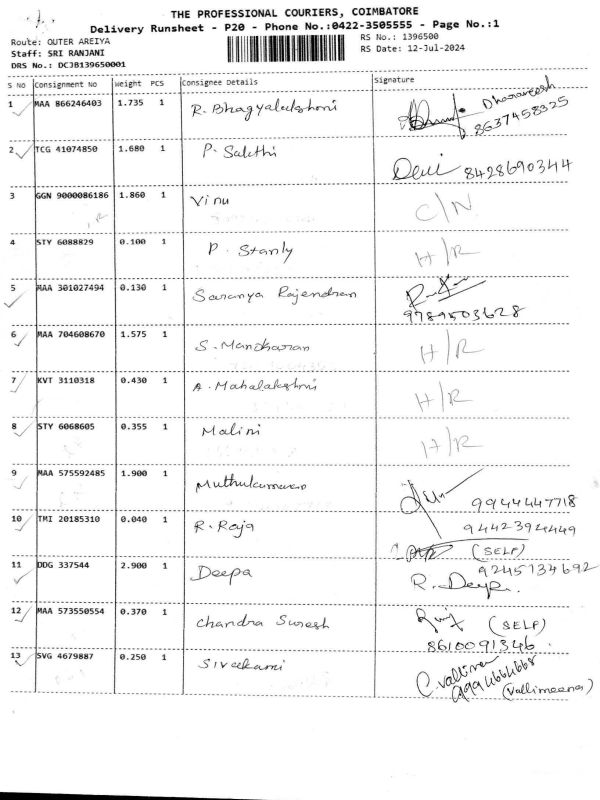 THE PROFESSIONAL COURIERS, COIMBATORE
Delivery Runsheet - P20 - Phone No.:0422-3505555 - Page No.:1
Route: OUTER AREIYA RS No.: 1396500
Staff: SRI RANJANI RS Date: 12-Jul-2024
DRS No.: DCJB139650001
S No Consignment No Weight PCS Consignee Details Signature
1 MAA 866246403 1.735 1 R. Bhagyalakshmi Dhanareesh
8637458325
2 TCG 41074850 1.680 1 P. Sakthi Devi 8428690344
3 GGN 9000086186 1.860 1 Vinu C/N
4 STY 6088829 0.100 1 P. Stanly H/R
5 MAA 301027494 0.130 1 Saranya Rajendran
9789503628
6 MAA 704608670 1.575 1 S. Manoharan H/R
7 KVT 3110318 0.430 1 A. Mahalakshmi H/R
8 STY 6068605 0.355 1 Malini H/R
9 MAA 575592485 1.900 1 Muthukumaran 9944447718
10 TMI 20185310 0.040 1 R. Raja 9442394449
(SELF)
11 DDG 337544 2.900 1 Deepa 9245734692
R. Deepa.
12 MAA 573550554 0.370 1 Chandra Suresh (SELF)
8610091346
13 SVG 4679887 0.250 1 Sivakami C. Valli
(Vallimeena)